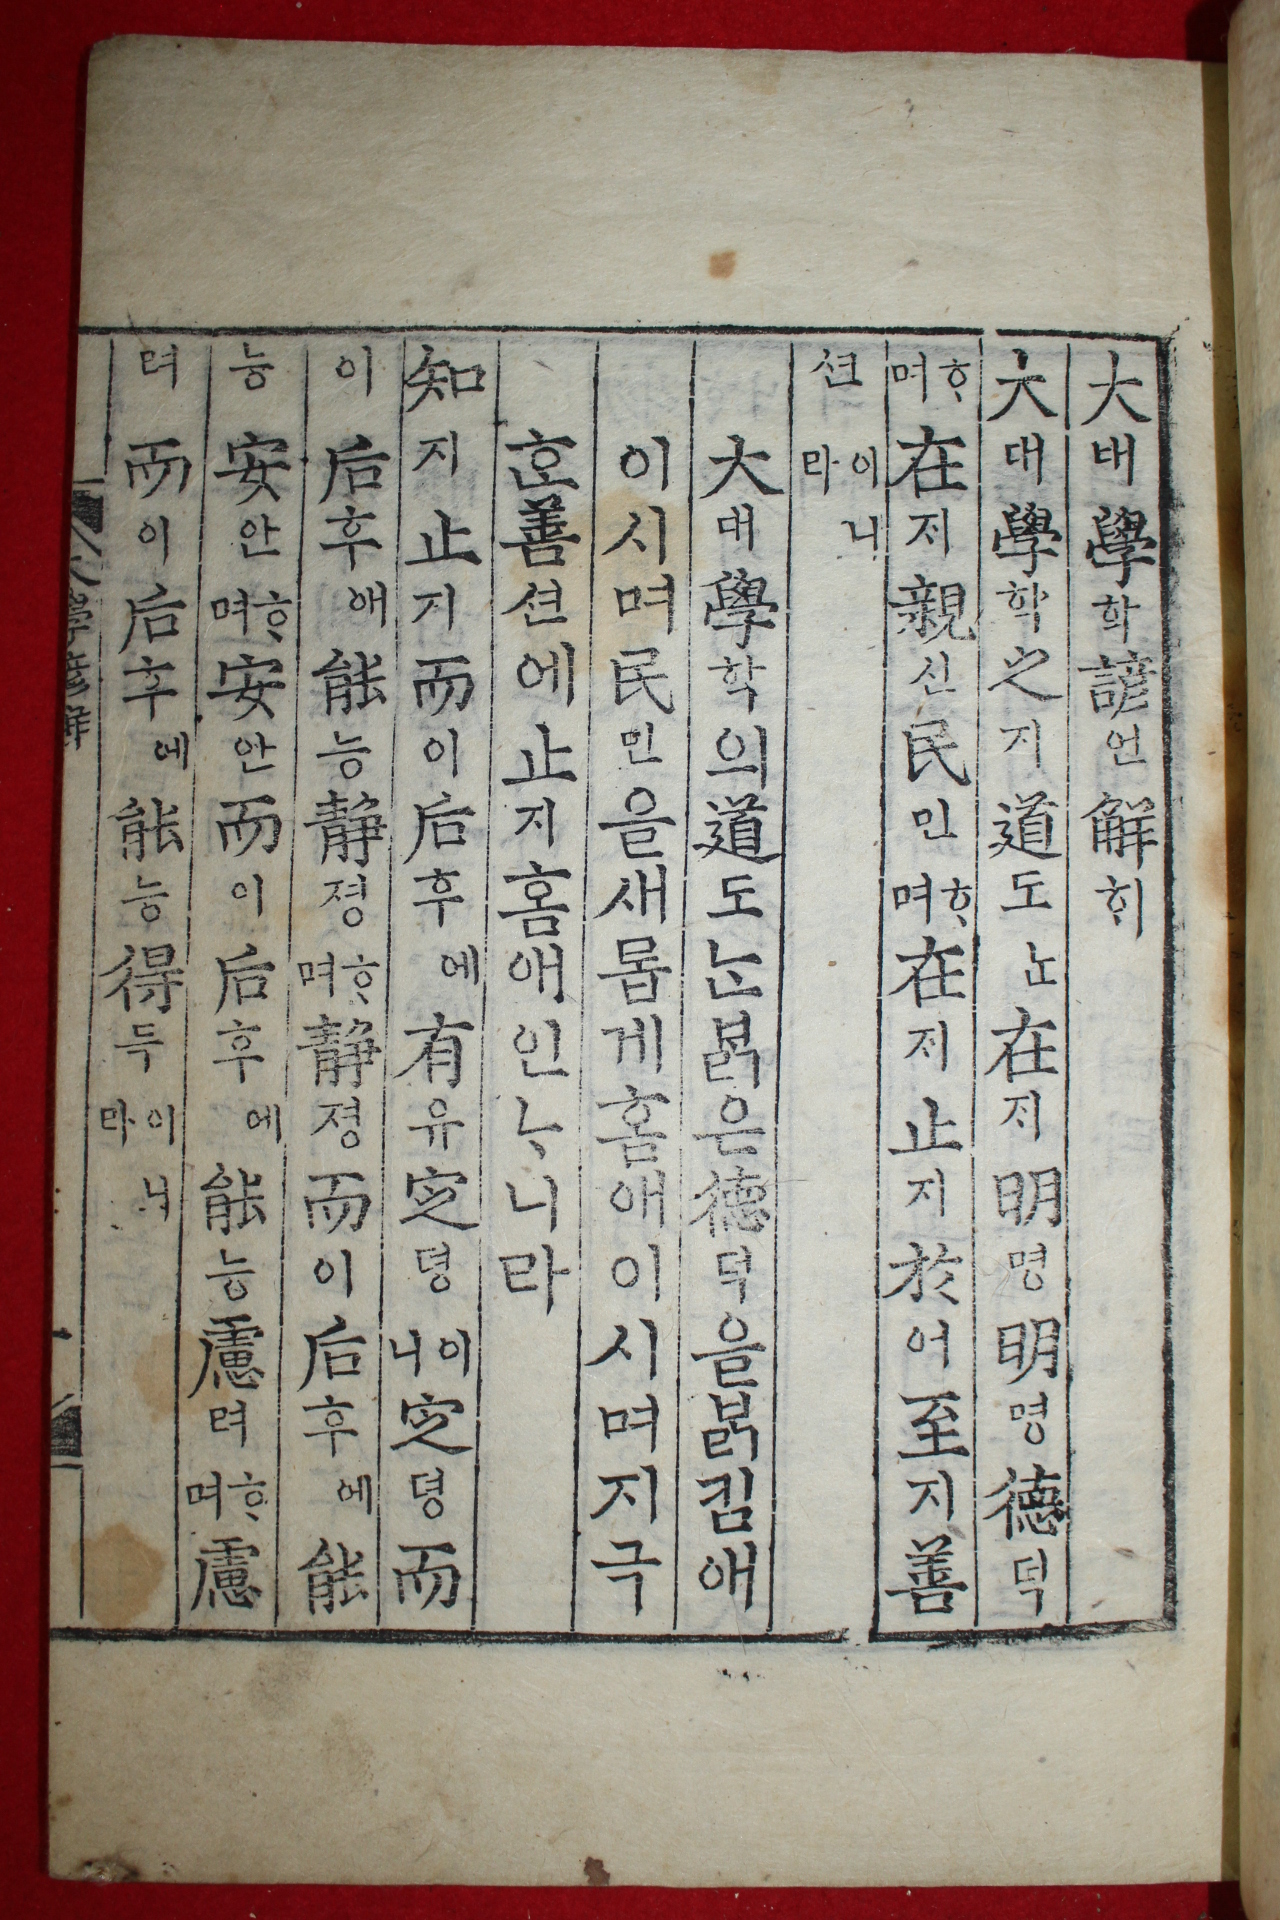 大태學학諺언解ᄒᆡ
大대學학之지道도ᄂᆞᆫ在ᄌᆡ明명明명德덕
ᄒᆞ며在ᄌᆡ親신民민ᄒᆞ며在ᄌᆡ止지於어至지善
션이니라
大대學학의道도ᄂᆞᆫᄇᆞᆰ은德덕을ᄇᆞᆰ킴애
이시며民민을새롭게홈애이시며지극
ᄒᆞᆫ善션에止지홈애인ᄂᆞ니라
知지止지而이后후에有유定뎡이니定뎡而
이后후애能능靜졍ᄒᆞ며靜졍而이后후에能
능安안ᄒᆞ며安안而이后후에能능慮려ᄒᆞ며慮
려而이后후에能능得득이니라
大學諺解